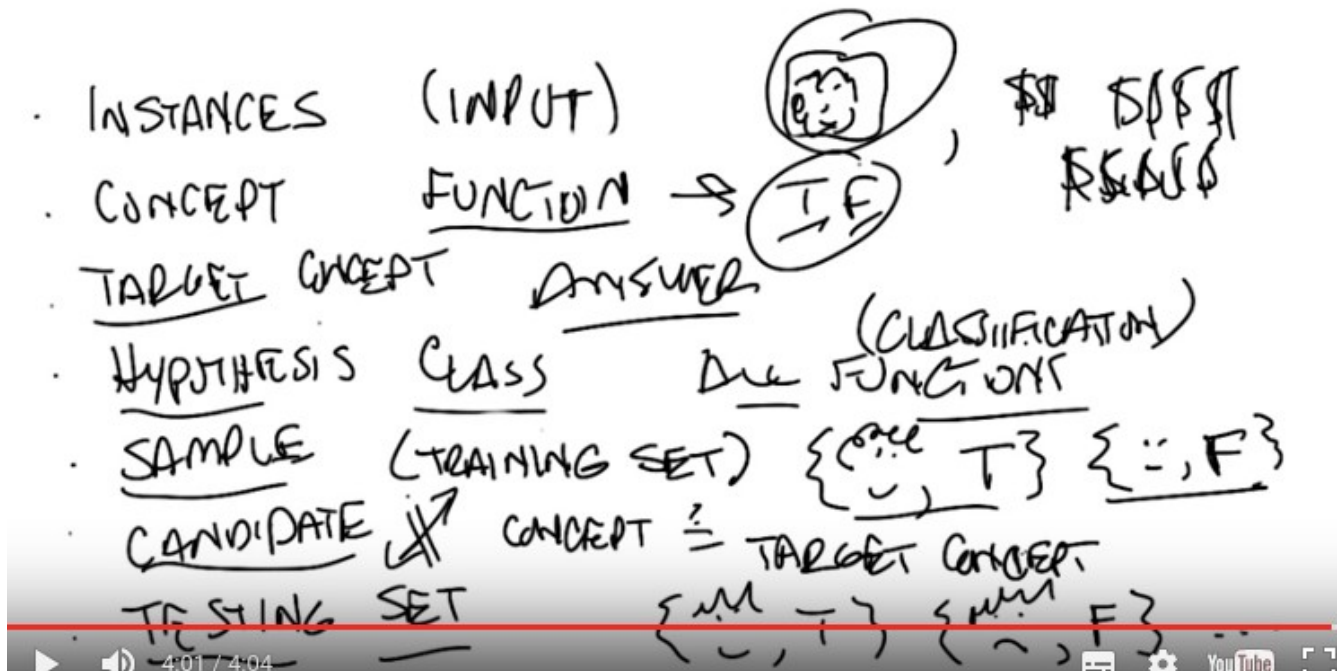 INSTANCES (INPUT) , $$ $$$$
$$$$$
CONCEPT FUNCTION → T F
TARGET CONCEPT ANSWER
(CLASSIFICATION)
HYPOTHESIS CLASS ALL FUNCTIONS
SAMPLE (TRAINING SET) { , T} { , F}
CANDIDATE CONCEPT ?= TARGET CONCEPT
TESTING SET { , T} { , F} ...
4:01 / 4:04 YouTube